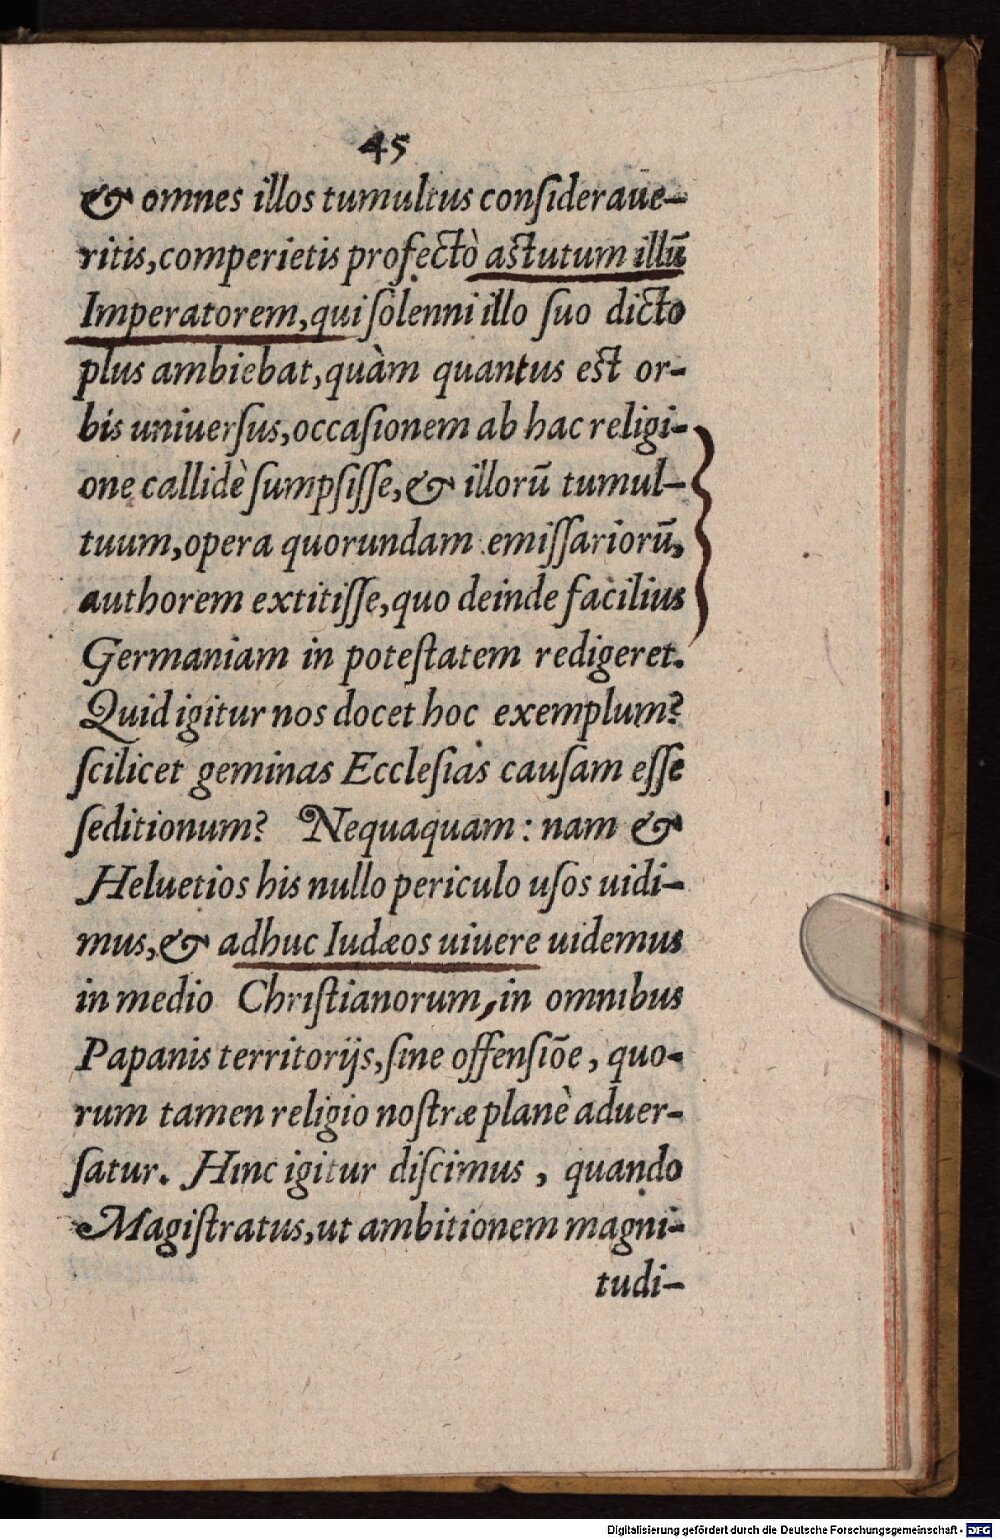 45
& omnes illos tumultus conſideraue-
ritis, comperietis profectò aſtutum illū
Imperatorem, qui ſolenni illo ſuo dicto
plus ambiebat, quàm quantus eſt or-
bis uniuerſus, occaſionem ab hac religi-
one callidè ſumpſiſſe, & illorū tumul-
tuum, opera quorundam emiſſariorū,
authorem extitiſſe, quo deinde facilius
Germaniam in poteſtatem redigeret.
Quid igitur nos docet hoc exemplum?
ſcilicet geminas Eccleſias cauſam eſſe
ſeditionum? Nequaquam: nam &
Heluetios his nullo periculo uſos uidi-
mus, & adhuc Iudæos uiuere uidemus
in medio Chriſtianorum, in omnibus
Papanis territorijs, ſine offenſiōe, quo-
rum tamen religio noſtræ planè aduer-
ſatur. Hinc igitur diſcimus, quando
Magiſtratus, ut ambitionem magni-
tudi-
Digitalisierung gefördert durch die Deutsche Forschungsgemeinschaft - DFG